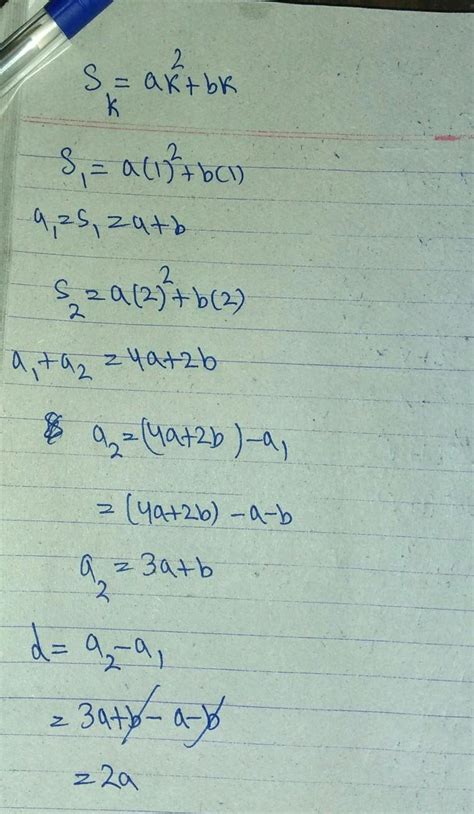 S_k = ak²+bk
S₁ = a(1)²+b(1)
a₁=S₁=a+b
S₂=a(2)²+b(2)
a₁+a₂=4a+2b
a₂=(4a+2b)-a₁
=(4a+2b)-a-b
a₂=3a+b
d= a₂-a₁
=3a+b-a-b
=2a